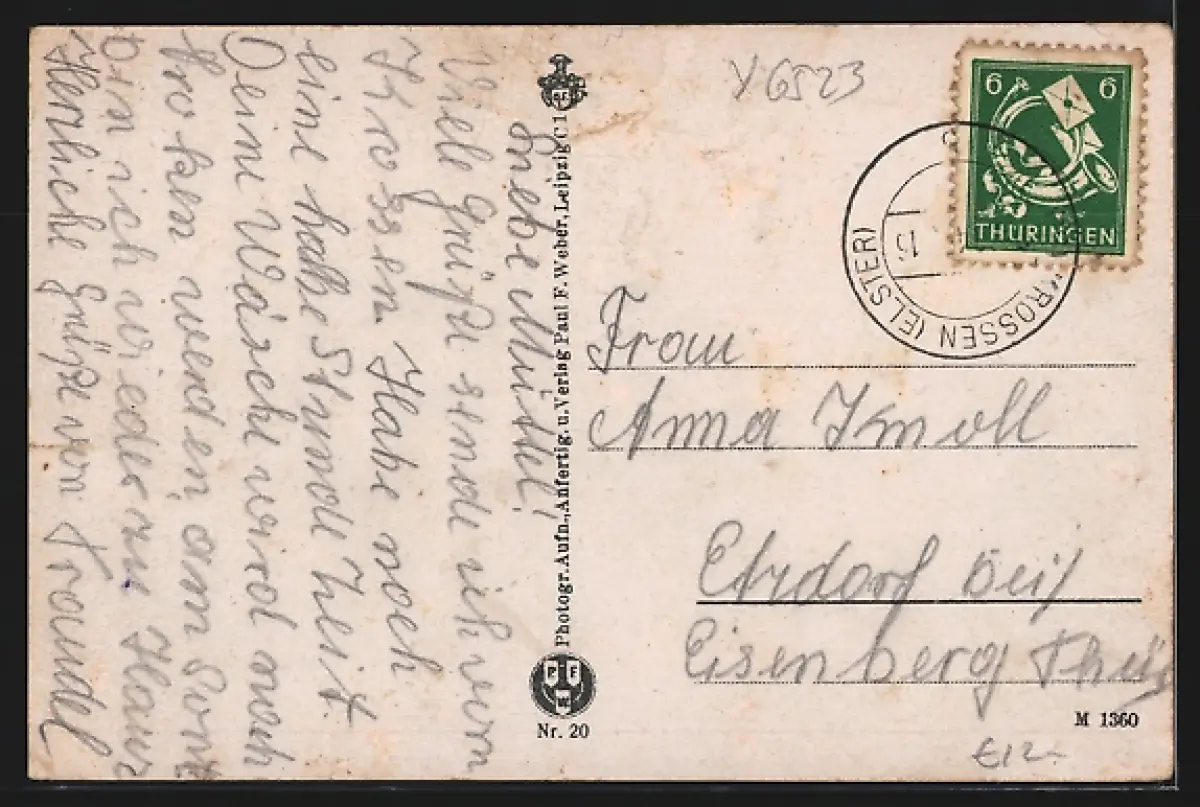 Liebe Mutter!
Viele Grüße sende ich von
Krossen Habe noch
eine halbe Stunde Zeit.
Deine Wäsche wird noch
trocken werden, am Sonnt
bin ich wieder zu Haus
Herzliche Grüße von Traudel
Photogr. Aufn., Anfertig. u. Verlag Paul F. Weber, Leipzig C 1
P F
W
Nr. 20
Y 6523
6 6
THÜRINGEN
ROSSEN (ELSTER)
15
Frau
Anna Knoll
Etzdorf bei
Eisenberg Thür
M 1360
€12.-